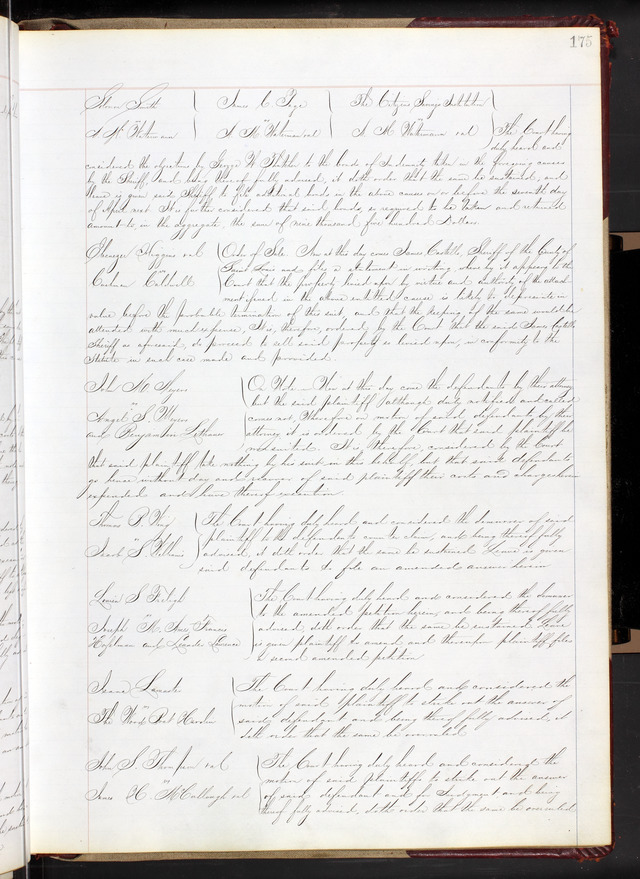 175
James C. Page The Citizens Savings Institution
The Court having
duly heard and
considered the objections by to the bonds of Indemnity taken in the foregoing causes
by the Sheriff, and being thereof fully advised, it doth order that the same be sustained, and
leave is given said Sheriff to file additional bonds in the above causes on or before the seventh day
of April next. It is further considered that said bonds, so required to be taken and returned
amount to, in the aggregate the sum of nine thousand five hundred Dollars.
Ebenezer Higgins et al Order of Sale. Now at this day comes James Castello, Sheriff of the County of
Saint Louis and files a statement in writing whereby it appears to the
Court that the property levied upon by virtue and authority of the attach
ment issued in the above entitled cause is likely to depreciate in
value before the probable termination of this suit, and that the keeping of the same would be
attended with much expense, It is, therefore, ordered by the Court that the said James Castello
Sheriff as aforesaid, do proceed to sell said property so levied upon, in conformity to the
Statute in such case made and provided.
John Myers On Motion Now at this day come the defendants by their attorney
but the said plaintiff although duly notified and called
Angel S. Myers comes not, Wherefore on motion of said defendants by their
and Benjamin attorney it is ordered by the Court that said plaintiff be
non suited. It is therefore considered by the Court
that said plaintiff take nothing by his suit in this behalf, but that said defendants
go hence without day and recover of said plaintiff their costs and charges herein
expended and have thereof execution
Thomas P. The Court having duly heard and considered the demurrer of said
plaintiff to the defendants counter claim, and being thereof fully
Isaah S. advised, it doth order that the same be sustained Leave is given
said defendants to file an amended answer herein
Lewis S. The Court having duly heard and considered the demurrer
to the amended petition herein, and being thereof fully
Joseph Francis advised, doth order that the same be sustained Leave
and Leander Lawrence is given plaintiff to amend, and thereupon plaintiff files
a second amended petition
Isaac The Court having duly heard and considered the
motion of said plaintiff to strike out the answer of
The Wood Boat said defendant and being thereof fully advised, it
doth order that the same be overruled
John S. Thompson et al The Court having duly heard and considered the
motion of said plaintiffs to strike out the answer
James C. McCullough et al of said defendant and for Judgment and being
thereof fully advised, doth order that the same be overruled